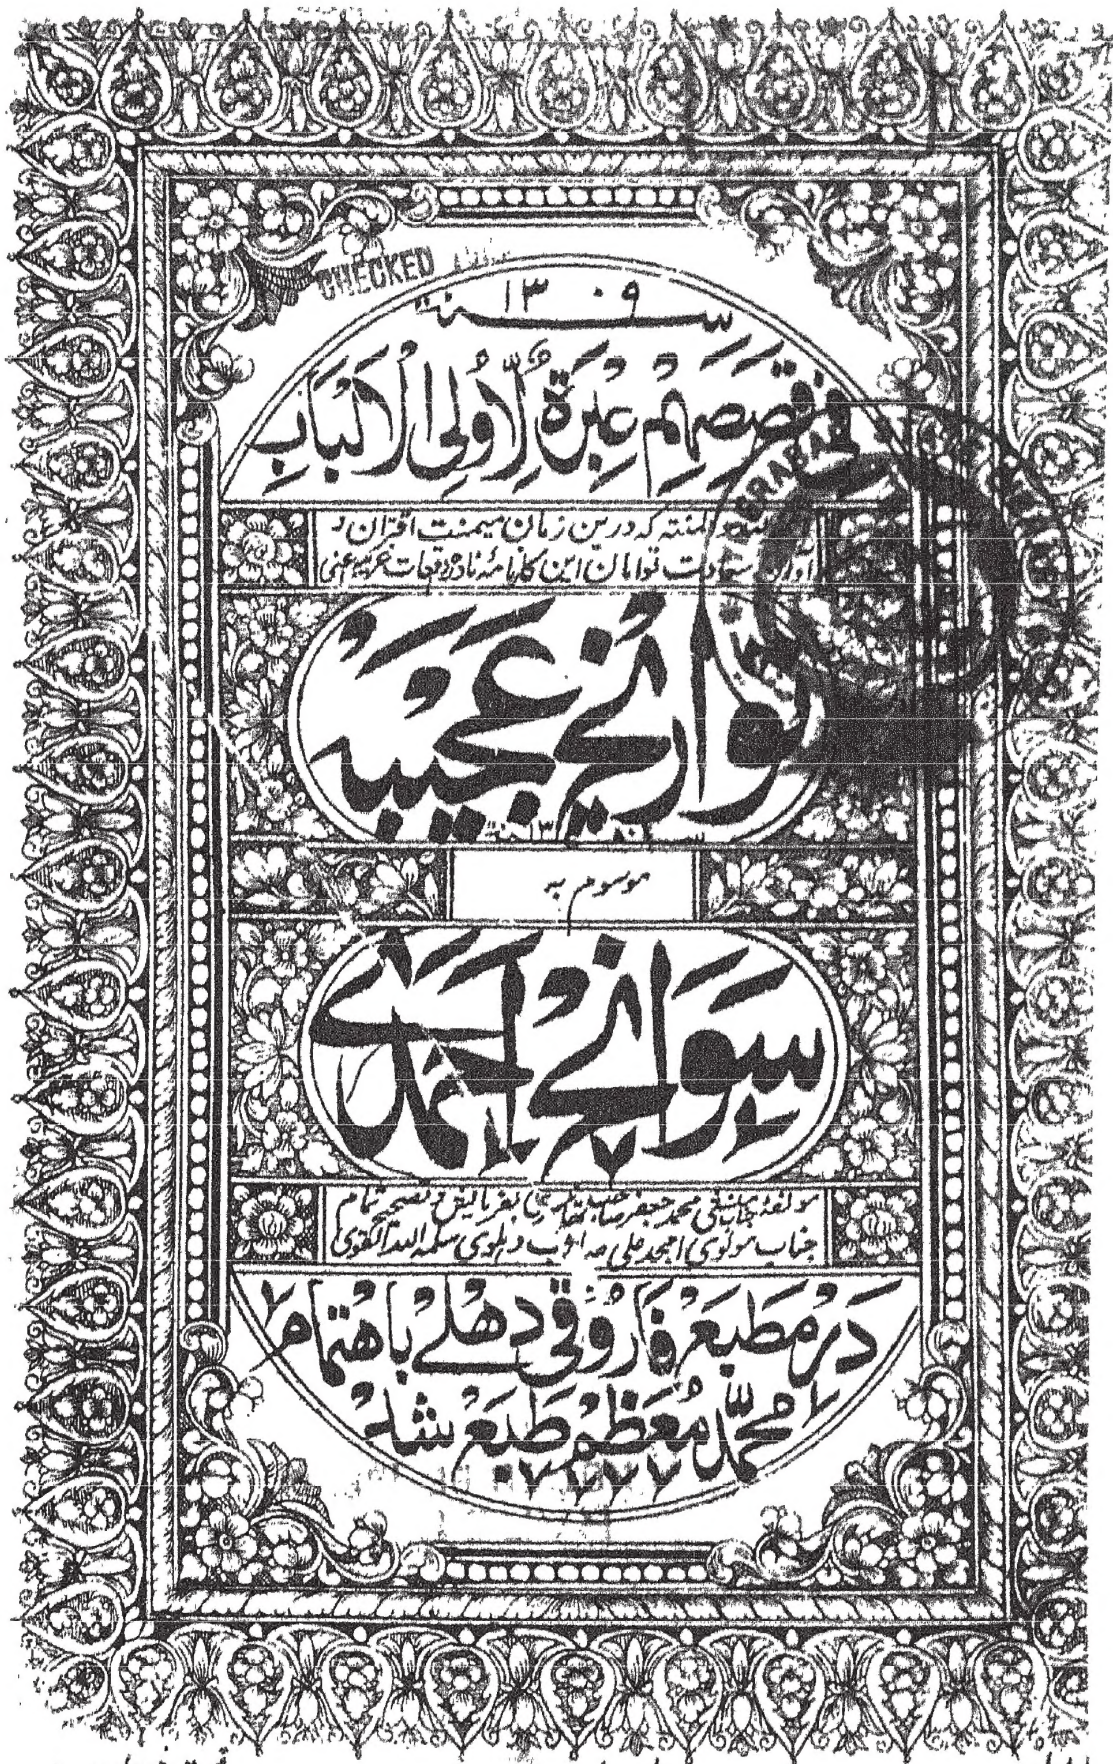 CHECKED
۱۳۰۹
سنة
فی قصصهم عبرة لاولی الالباب
المنته که درین زمان میمنت اقتران و
سعادت توامان این کارنامهٔ نادر
تواریخ عجیبه
موسوم به
سوانح احمدی
مولفهٔ جناب منشی محمد جعفر صاحب تھانیسری بفرمایش و تصحیح تمام
جناب مولوی امجد علی دہلوی سلمه الله القوی
در مطبع فاروقی دهلی باهتمام
محمد معظم طبع شد